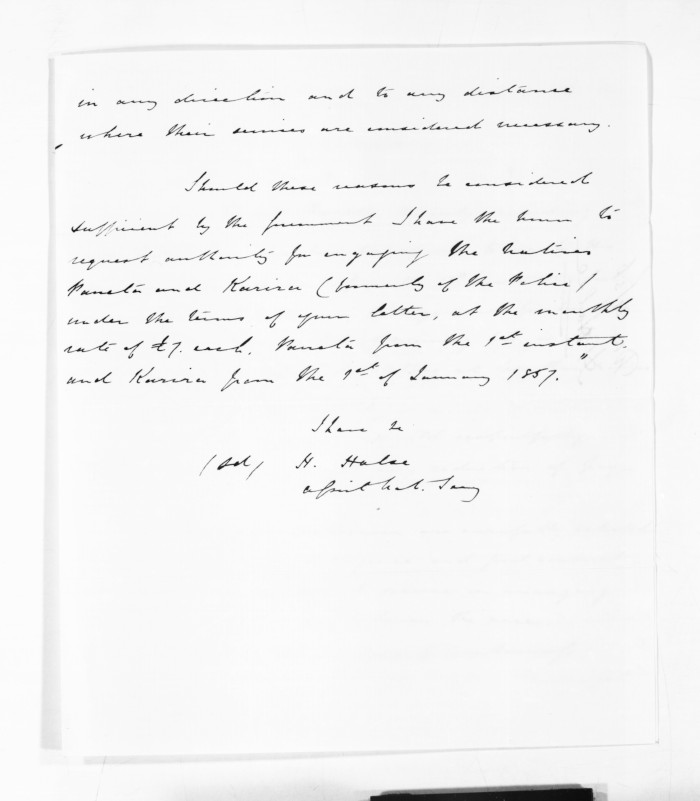 in any direction and to any distance
where their services are considered necessary.
Should these reasons be considered
sufficient by the government I have the honor to
request authority for engaging the Natives
and Karira (formerly of the Police)
under the terms of your letter, at the monthly
rate of £7. each, from the 1st instant
and Karira from the 1st of January 1857."
I have &c
(sd) H. Halse
Assist Nat. Secy